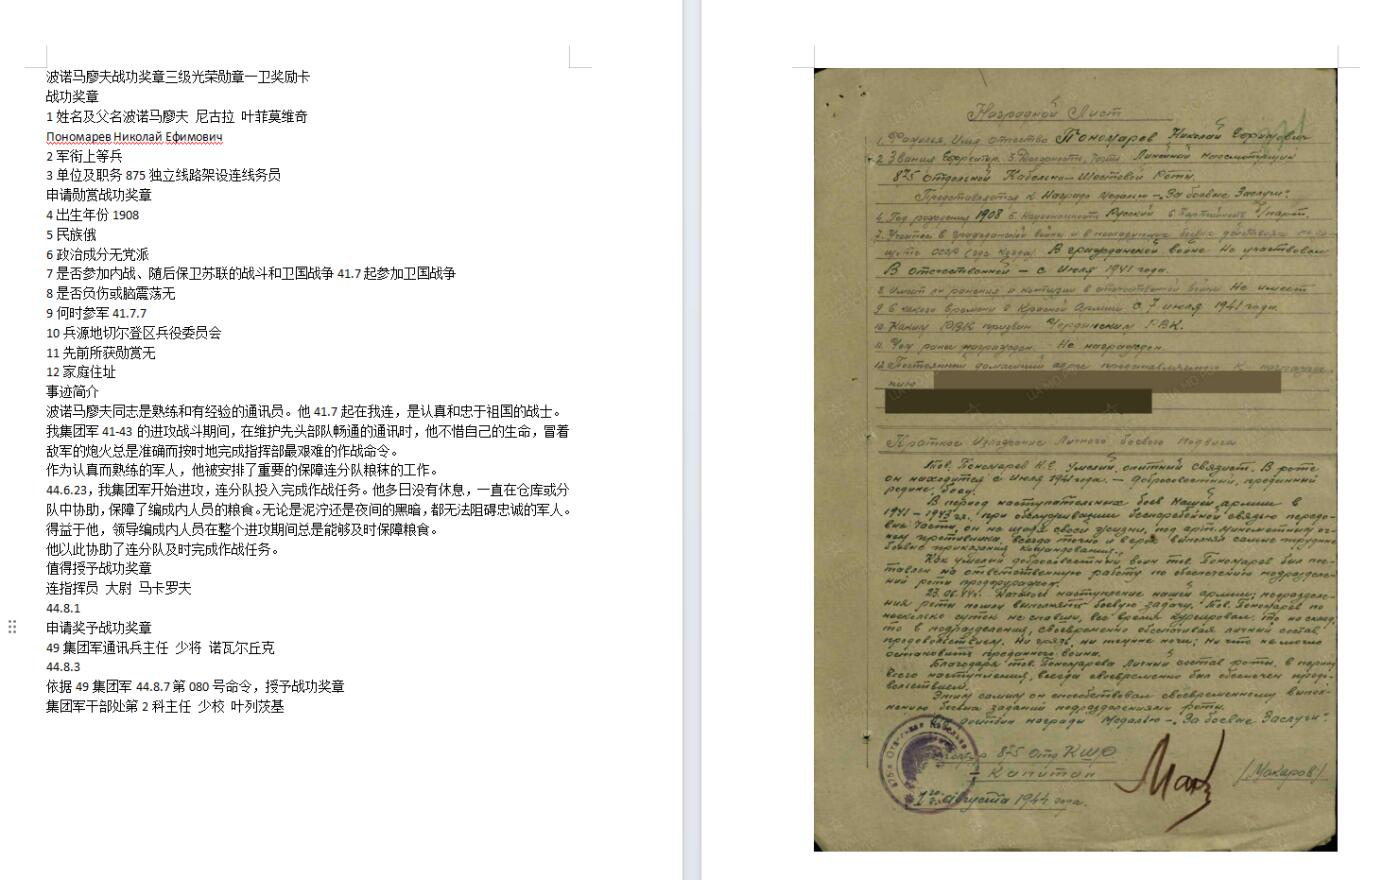 波诺马廖夫战功奖章三级光荣勋章一卫奖励卡
战功奖章
1 姓名及父名波诺马廖夫 尼古拉 叶菲莫维奇
Пономарев Николай Ефимович
2 军衔上等兵
3 单位及职务 875 独立线路架设连线务员
申请勋赏战功奖章
4 出生年份 1908
5 民族俄
6 政治成分无党派
7 是否参加内战、随后保卫苏联的战斗和卫国战争 41.7 起参加卫国战争
8 是否负伤或脑震荡无
9 何时参军 41.7.7
10 兵源地切尔登区兵役委员会
11 先前所获勋赏无
12 家庭住址
事迹简介
波诺马廖夫同志是熟练和有经验的通讯员。他 41.7 起在我连，是认真和忠于祖国的战士。
我集团军 41-43 的进攻战斗期间，在维护先头部队畅通的通讯时，他不惜自己的生命，冒着
敌军的炮火总是准确而按时地完成指挥部最艰难的作战命令。
作为认真而熟练的军人，他被安排了重要的保障连分队粮秣的工作。
44.6.23，我集团军开始进攻，连分队投入完成作战任务。他多日没有休息，一直在仓库或分
队中协助，保障了编成内人员的粮食。无论是泥泞还是夜间的黑暗，都无法阻碍忠诚的军人。
得益于他，领导编成内人员在整个进攻期间总是能够及时保障粮食。
他以此协助了连分队及时完成作战任务。
值得授予战功奖章
连指挥员 大尉 马卡罗夫
44.8.1
申请奖予战功奖章
49 集团军通讯兵主任 少将 诺瓦尔丘克
44.8.3
依据 49 集团军 44.8.7 第 080 号命令，授予战功奖章
集团军干部处第 2 科主任 少校 叶列茨基
Наградной Лист
1. Фамилья Имя Отчество Пономарев Николай Ефимович
2. Звания Ефрейтор 3. Должность, часть Линейной надсмотрщик
875 Отдельной Кабельно-Шестовой Роты.
Представляется к Награде Медалью - "За боевые Заслуги".
4. Год рождения 1908 5. Национальность Русский 6. Партийность б/парт.
В гражданской войне Не участвовал
В отечественной - с Июля 1941 года.
8. Имеет ли ранения и контузии в отечественной войне Не имеет
9. С какого времени в Красной Армии С 7 июля 1941 года.
10. Каким РВК призван Чердинским РВК.
11. Чем ранее награжден Не награжден.
12. Постоянный домашний адрес представляемого к награжде-
нию
Краткое Изложение Личного боевого Подвига
Тов. Пономарев Н.Е. Умелый, опытный связист. В роте
он находится с Июля 1941 года. - Добросовестный, преданный
родине боец.
В период наступательных боев Нашей армии в
1941-1943 гг. при обслуживании бесперебойной связью передо-
вые части, он не щадя своей жизни, под арт. минометным ог-
нем противника, всегда точно и в срок выполнял самые трудные
боевые приказания командования.
Как умелый добросовестный воин тов. Пономарев был пос-
тавлен на ответственную работу по обеспечению подразделе-
ний роты продфуражом.
23.06.44г. Началось наступление нашей армии; подразделе-
ния роты пошли выполнять боевую задачу. Тов. Пономарев по
несколько суток не спавши, все время курсировал то на склад,
то в подразделения, своевременно обеспечивая личный состав
продовольствием. Ни грязь, ни темные ночи, ни что не могло
остановить преданного воина.
Благодаря тов. Пономарева Личный состав роты, в период
всего наступления, всегда своевременно был обеспечен продо-
вольствием.
Этим самым он способствовал своевременному выпол-
нению боевых заданий подразделениями роты.
Достоин награды Медалью - "За боевые Заслуги".
875 Отд КШР
Капитан
(Макаров)
1 Августа 1944 года.